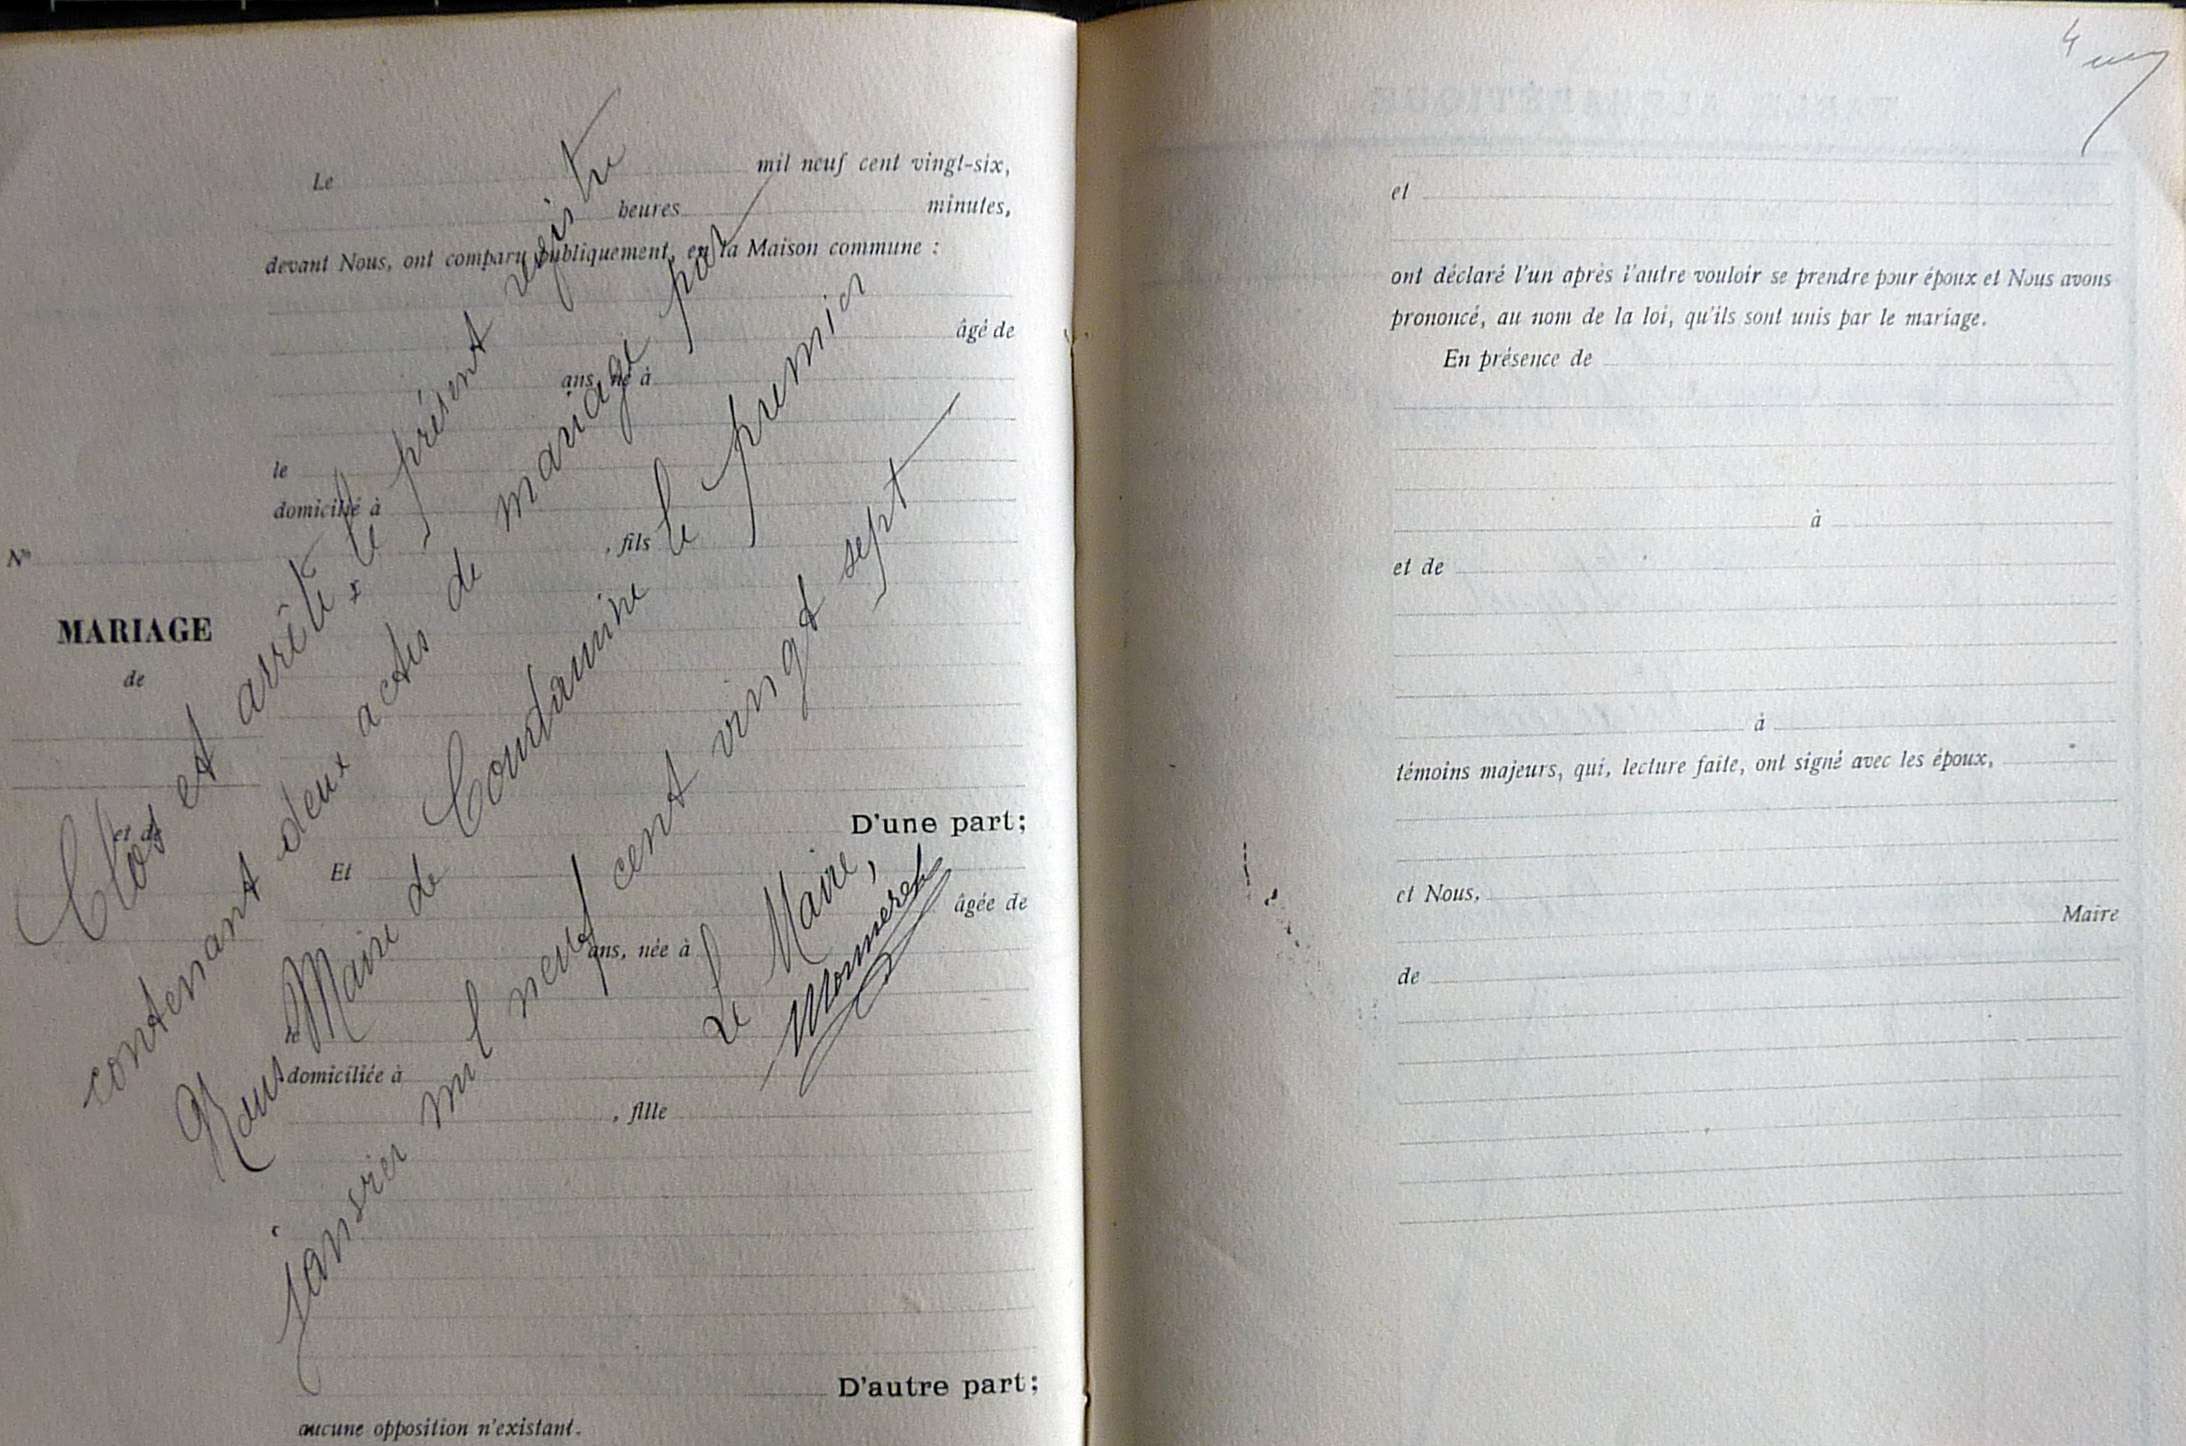 Le mil neuf cent vingt-six,
heures minutes,
devant Nous, ont comparu publiquement, en la Maison commune :
âgé de
ans, né à
le
domicilié à
, fils
N°
MARIAGE
de
et de
D'une part;
Et
âgée de
ans, née à
le
domiciliée à
, fille
D'autre part;
aucune opposition n'existant.
Clos et arrêté le présent registre
contenant deux actes de mariage par
Nous Maire de Courdamine le premier
janvier mil neuf cent vingt sept
Le Maire,
4
et
ont déclaré l'un après l'autre vouloir se prendre pour époux et Nous avons
prononcé, au nom de la loi, qu'ils sont unis par le mariage.
En présence de
à
et de
à
témoins majeurs, qui, lecture faite, ont signé avec les époux,
et Nous,
Maire
de